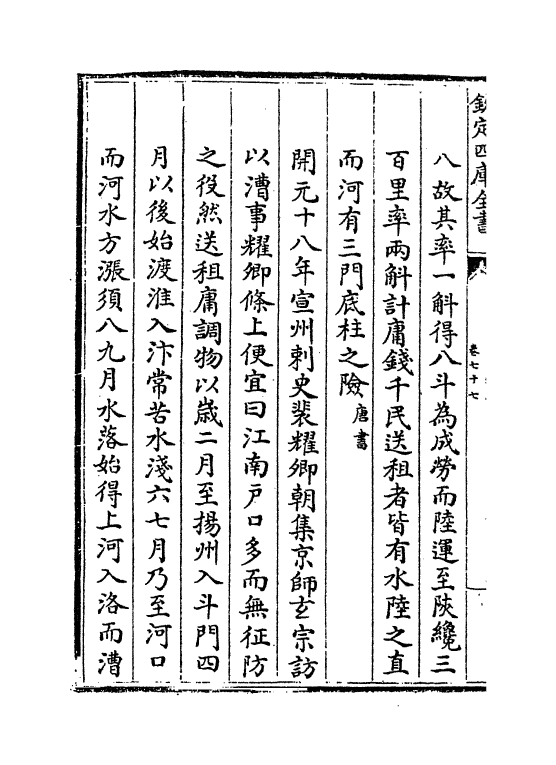 欽定四庫全書
卷七十七
八故其率一斛得八斗為成勞而陸運至陜纔三
百里率兩斛計庸錢千民送租者皆有水陸之直
而河有三門底柱之險唐書
開元十八年宣州剌史裴耀卿朝集京師玄宗訪
以漕事耀卿條上便宜曰江南戸口多而無征防
之役然送租庸調物以歲二月至揚州入斗門四
月以後始渡淮入汴常苦水淺六七月乃至河口
而河水方漲須八九月水落始得上河入洛而漕